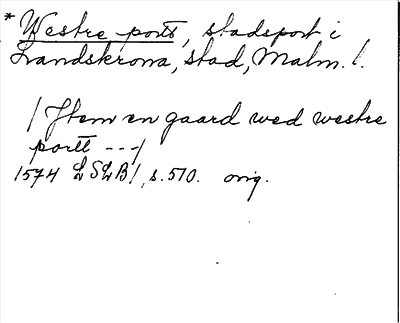 * Westre portt, stadsport i
Landskrona, stad, Malm. l.
/ Jtem en gaard wed westre
portt --- /
1574 LSLB 1, s. 510. orig.